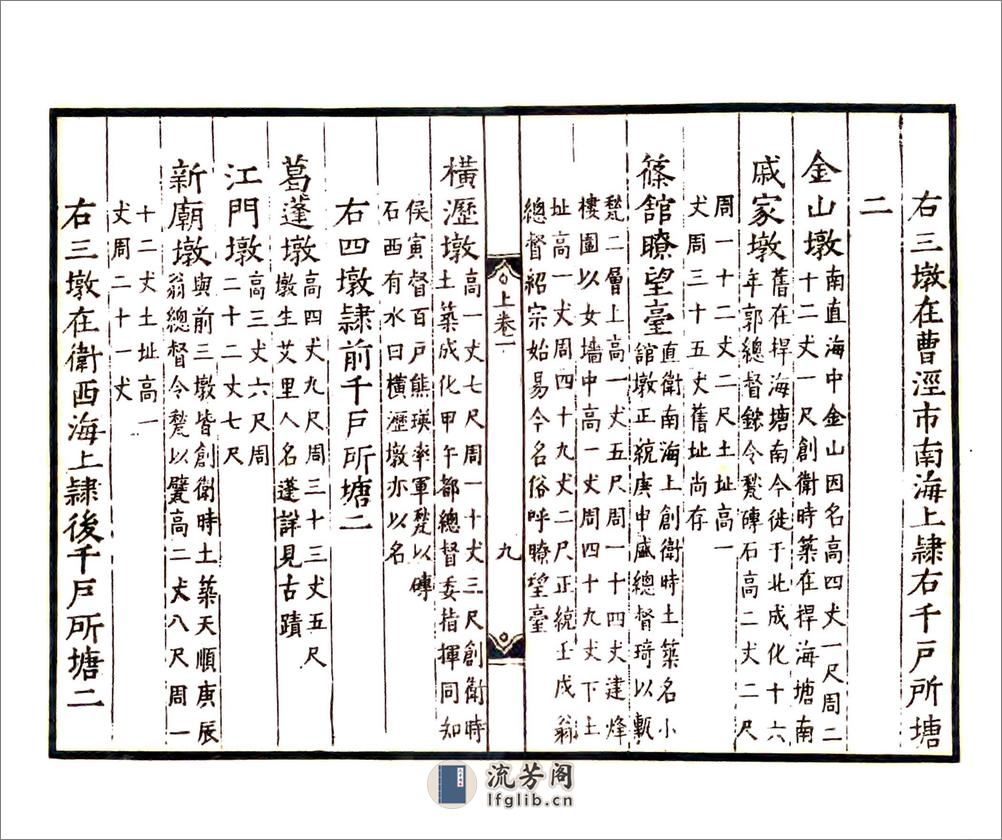 右三墩在曹涇市南海上隸右千戶所塘
二
金山墩
南直海中金山因名高四丈一尺周二
十二丈一尺創衛時築在捍海塘南
戚家墩
舊在捍海塘南今徙于北成化十六
年郭總督鋐令甃磚石高二丈二尺
周一十二丈二尺土址高一
丈周三十五丈舊址尚存
篠舘瞭望臺
直衛南海上創衛時土築名小
舘墩正統庚申盛總督琦以甎
甃二層上高一丈五尺周一十四丈建烽
樓圍以女墻中高一丈周四十九丈下土
址高一丈周四十九丈二尺正統壬戍翁
總督紹宗始易今名俗呼瞭望臺
上卷一
九
橫瀝墩
高一丈七尺周一十丈三尺創衛時
土築成化甲午都總督委指揮同知
侯寅督百戶熊瑛率軍甃以磚
石西有水曰橫瀝墩亦以名
右四墩隸前千戶所塘二
葛蓬墩
高四丈九尺周三十三丈五尺
墩生艾里人名蓬詳見古蹟
江門墩
高三丈六尺周
二十二丈七尺
新廟墩
與前三墩皆創衛時土築天順庚辰
翁總督令甃以甓高二丈八尺周一
十二丈土址高一
丈周二十一丈
右三墩在衛西海上隸後千戶所塘二
流芳阁
lfglib.cn